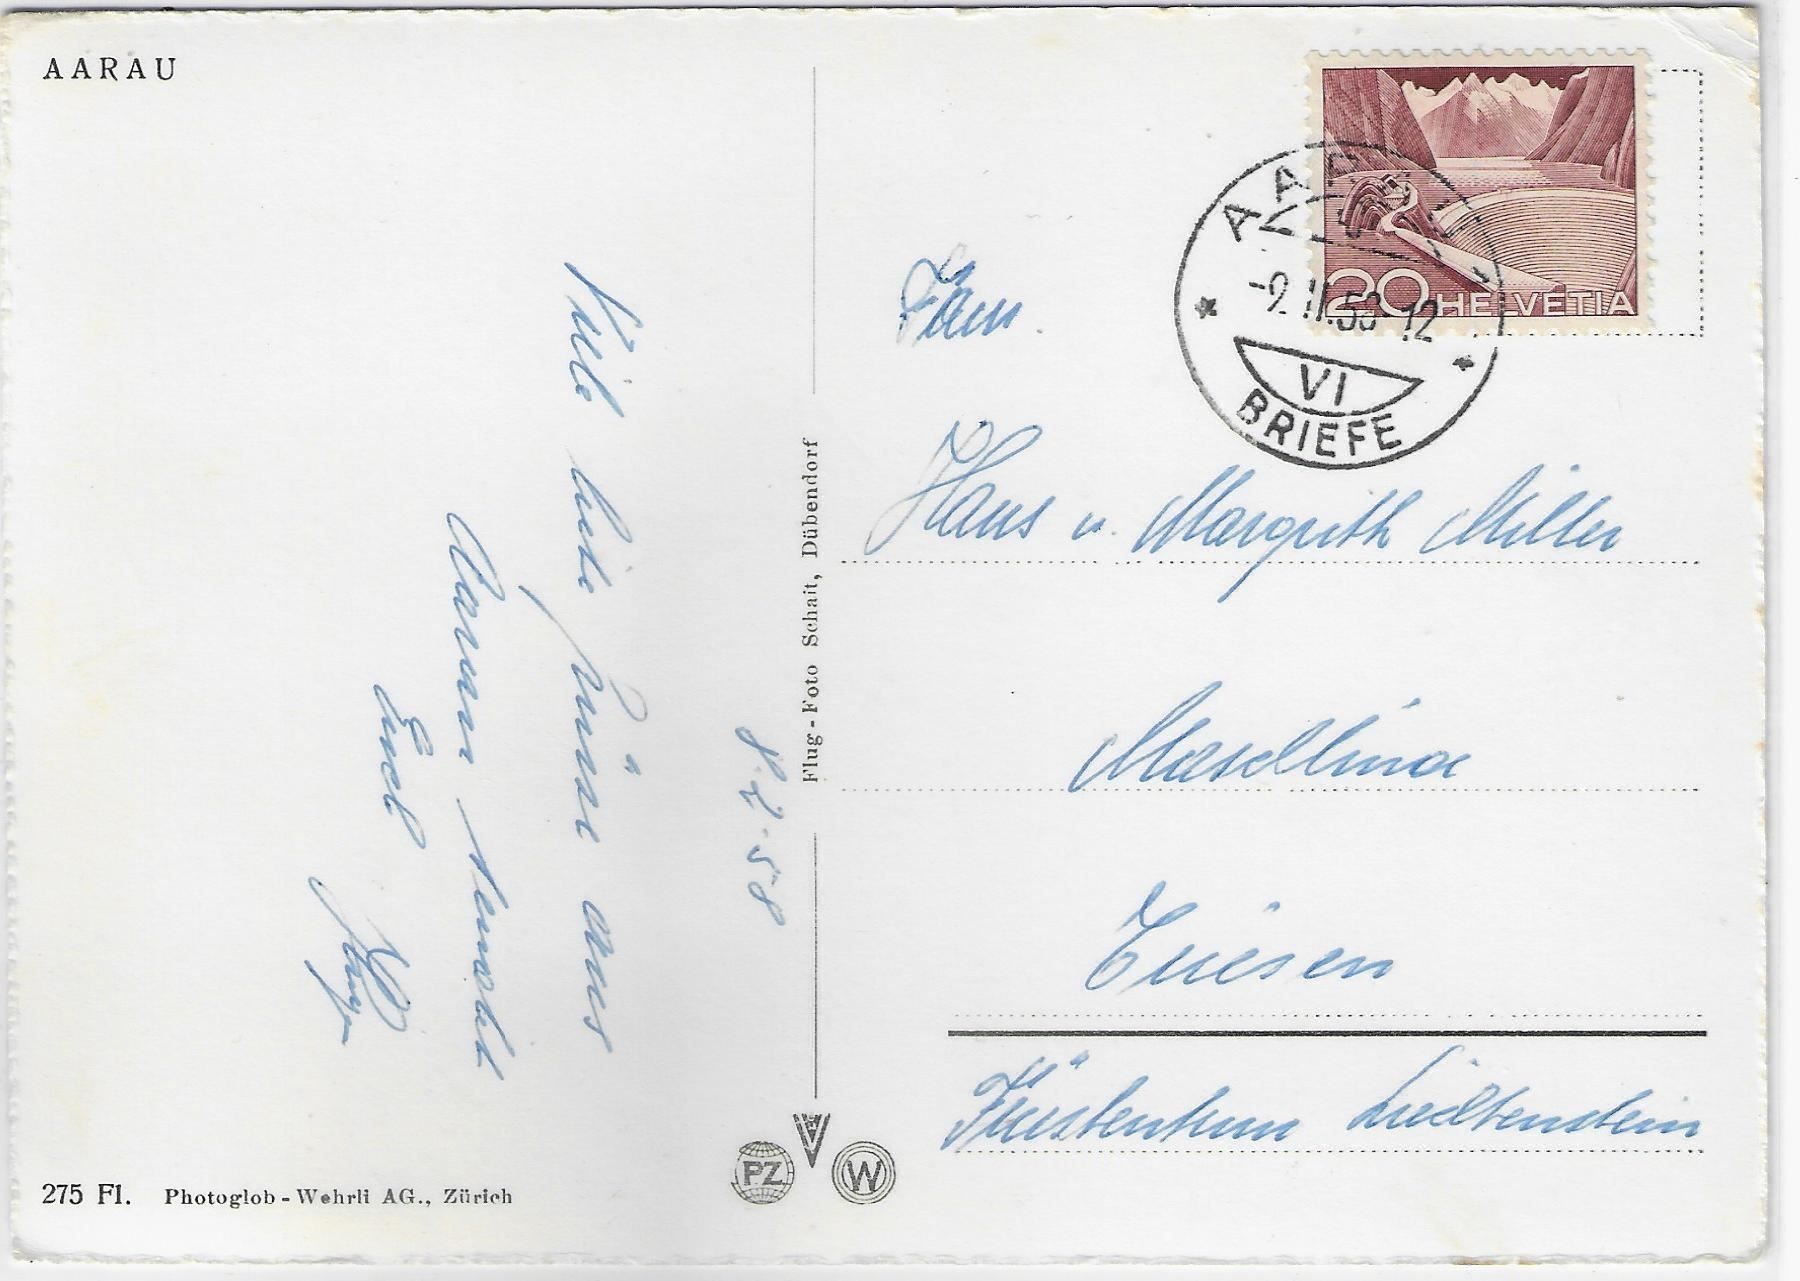 AARAU
Viele liebe Grüsse aus
Aarau sendet
Euch
8.2.58
Flug-Foto Schait, Dübendorf
275 Fl. Photoglob-Wehrli AG., Zürich
PZ
W
20 HELVETIA
-9.II.58-12
VI
BRIEFE
Fam.
Hans u. Margrith Miller
Maschlina
Triesen
Fürstentum Liechtenstein